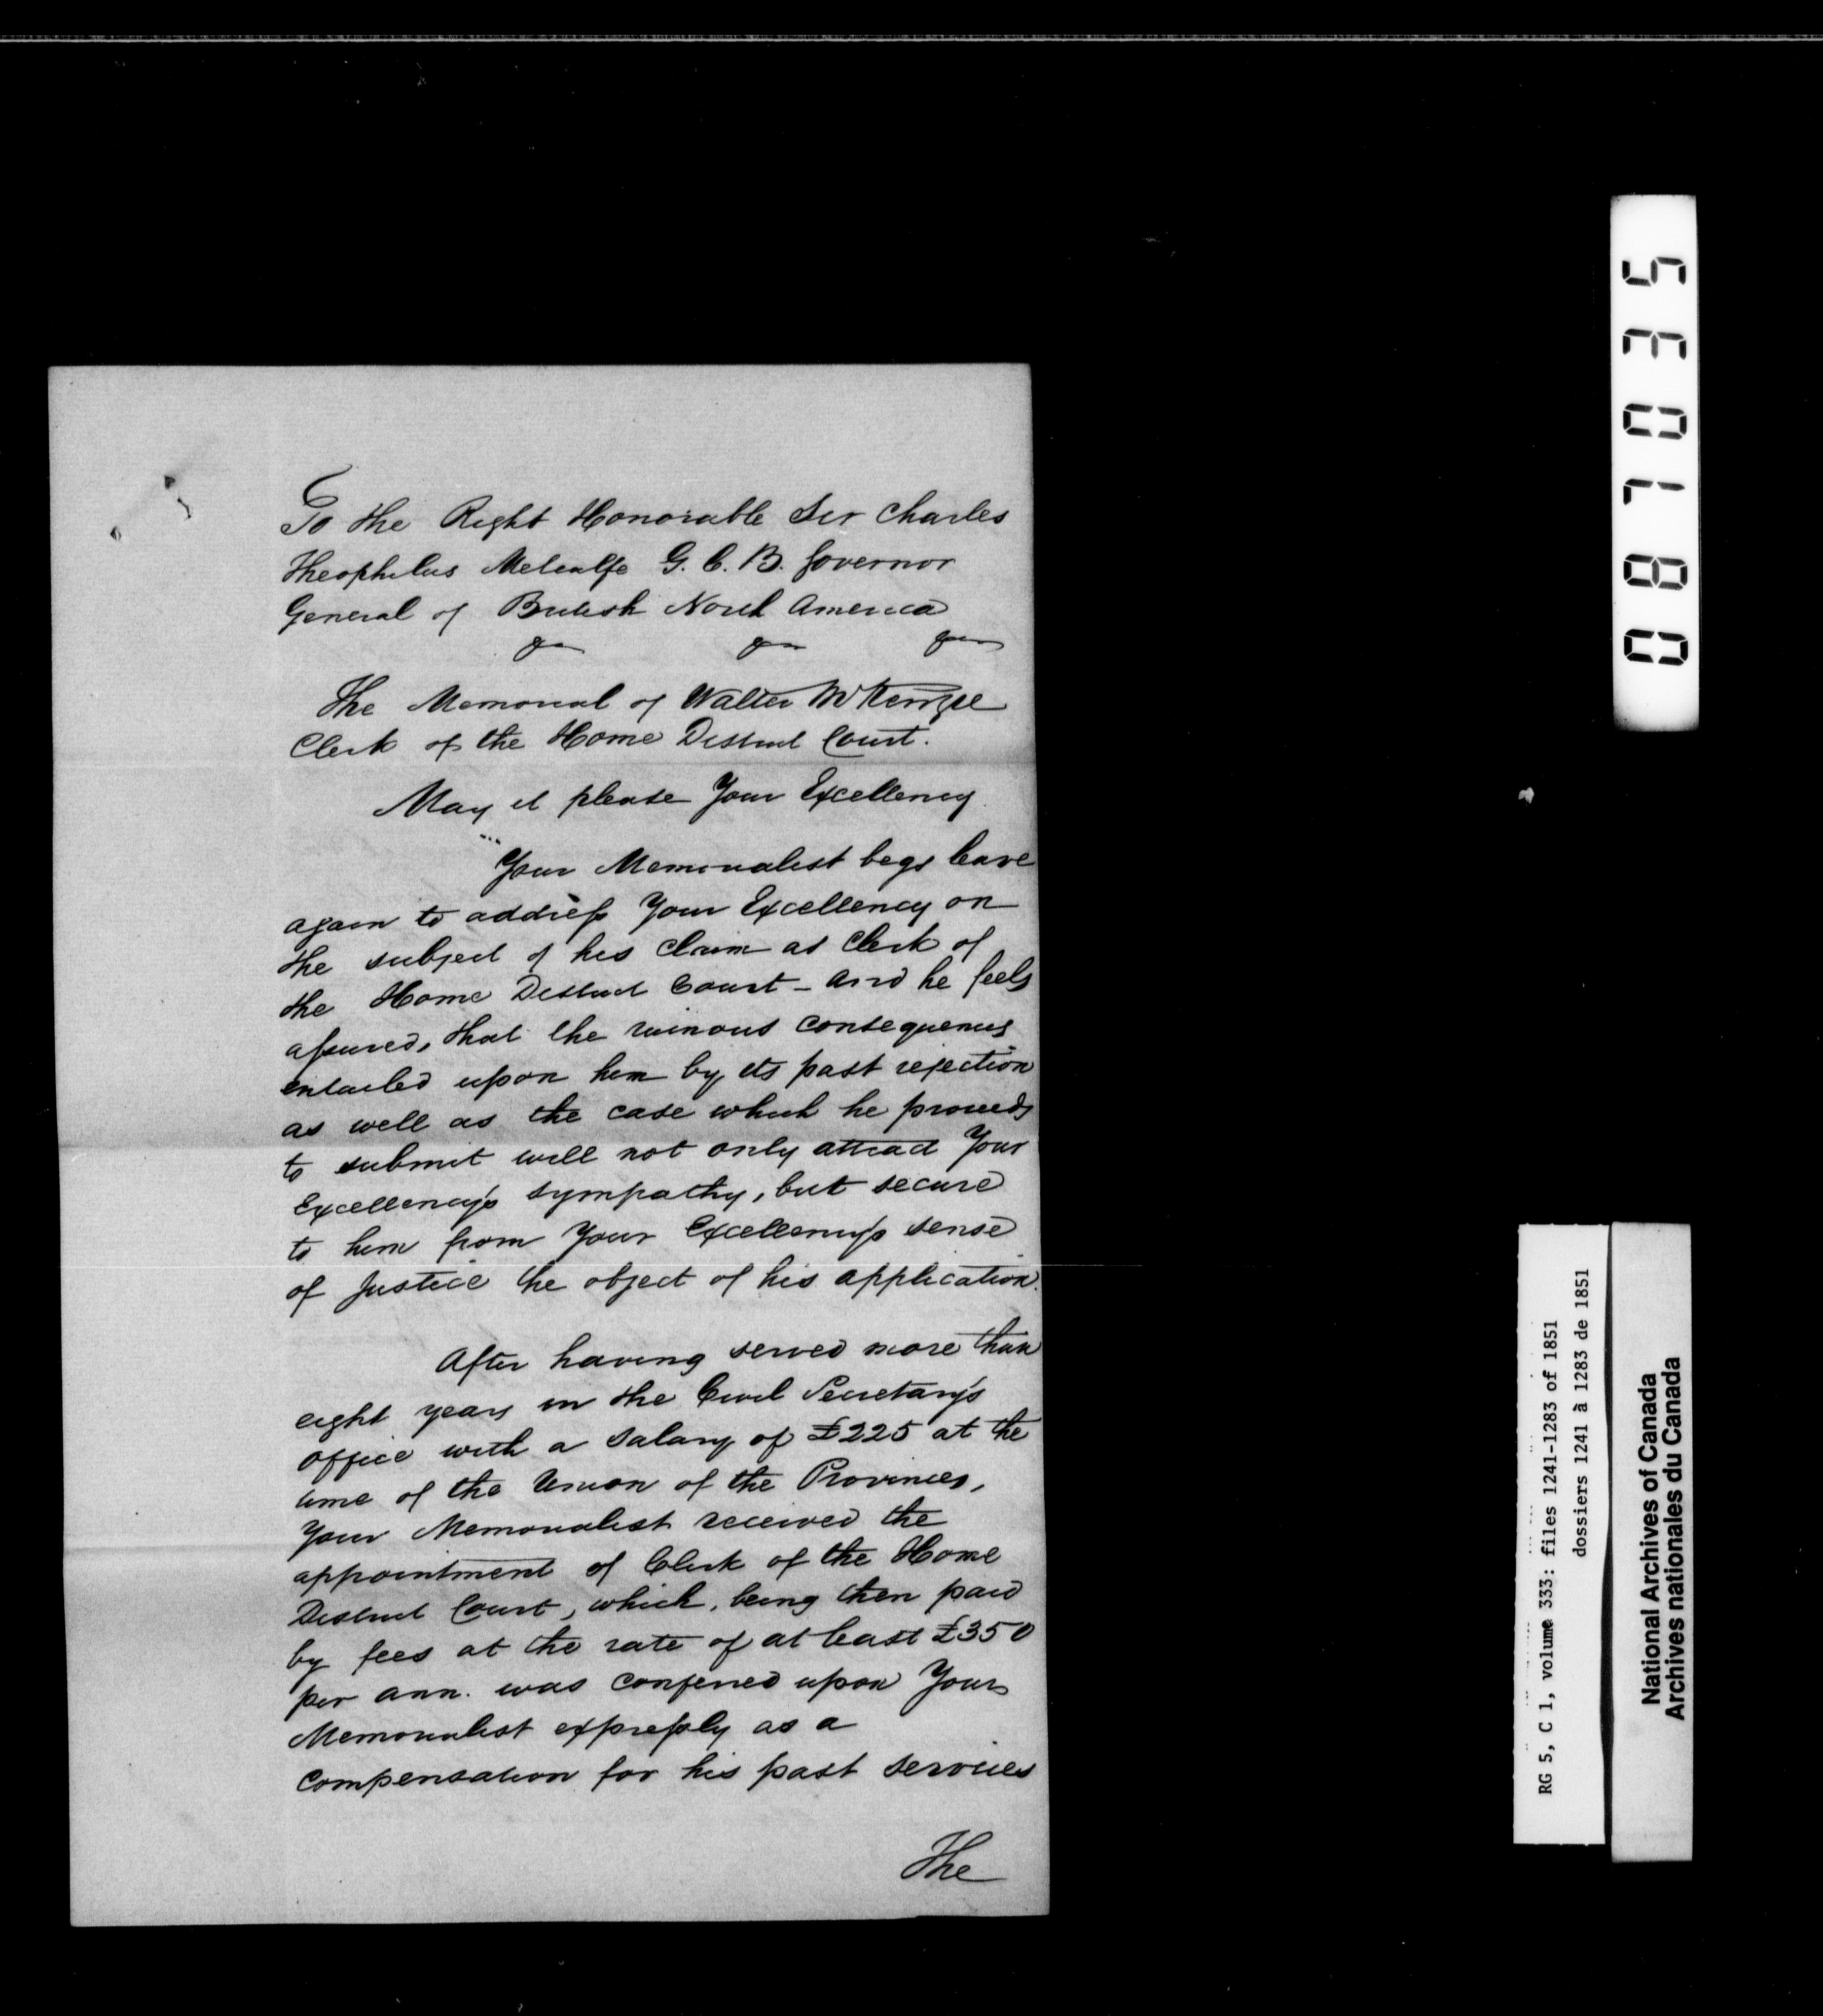 To the Right Honorable Sir Charles
Theophilus Metcalfe G. C. B. Governor
General of British North America
&c &c &c
The Memorial of Walter McKenzie
Clerk of the Home District Court.
May it please Your Excellency
Your Memorialist begs leave
again to address Your Excellency on
the subject of his claim as Clerk of
the Home District Court - and he feels
assured, that the ruinous consequences
entailed upon him by its past rejection
as well as the case which he proceeds
to submit will not only attract Your
Excellency's sympathy, but secure
to him from Your Excellency's sense
of Justice the object of his application.
After having served more than
eight years in the Civil Secretary's
office with a salary of £225 at the
time of the Union of the Provinces,
Your Memorialist received the
appointment of Clerk of the Home
District Court, which, being then paid
by fees at the rate of at least £350
per ann. was conferred upon Your
Memorialist expressly as a
compensation for his past services
The
087035
RG 5, C 1, volume 333: files 1241-1283 of 1851
dossiers 1241 à 1283 de 1851
National Archives of Canada
Archives nationales du Canada